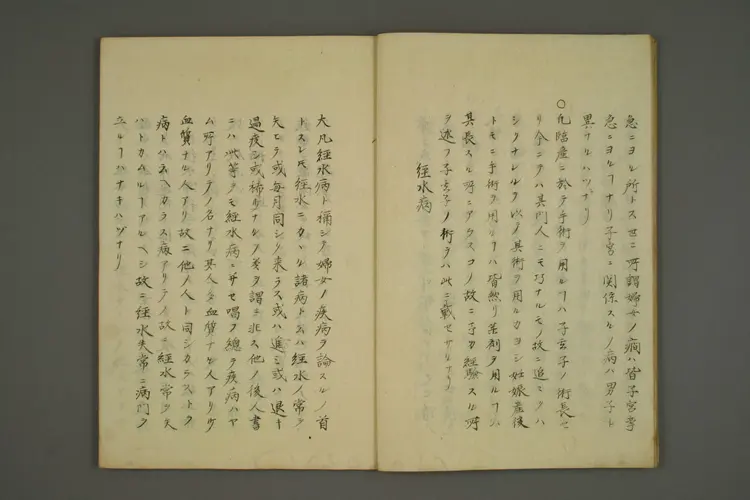 急ニヨル所トス世ニ所謂婦女ノ癇ハ皆子宮攣
急ニヨルヿナリ子宮ニ関係スルノ病ハ男子ト
異ナルハヅナリ
〇凡臨産ニ於テ手術ヲ用ルヿハ子玄子ノ術長セ
リ今ニテハ其門人ニモ巧ナルモノ故ニ追ミクハ
シクナレル以ノ其術ヲ用ルカヨシ妊娠産後
トモニ手術ヲ用ルヿハ皆然リ薬剤ヲ用ルヿハ
其長スル所ニアラス故ニ予カ經驗スル所
ヲ述フ子玄子ノ術ヲハ此ニ載セサルナリ
經水病
大凡經水病ト稱シテ婦女ノ疾病ヲ論スルノ首
トスレ𪜈經水ニカヽル諸病ト云ハ經水ノ常ヲ
失ヒテ或毎月同シク来ラス或ハ進ミ或ハ退キ
過度シ或稀少ナルヿ等ヲ謂ニ非ス他ノ後人書
ニハ此等ヲモ經水病ニ唱フ總テ疾病ハヤ
ム所ナリテノ名ナリ其人多血質ナル人アリ少
血質ナル人アリ故ニ他ノ人ト同シカラストテ
病トハ云ヘカラス病アリテノ故ニ經水常ヲ失
ハトカムルヿアルヘシ故ニ經水失常ニ病門ヲ
立ルヿハナキハヅナリ